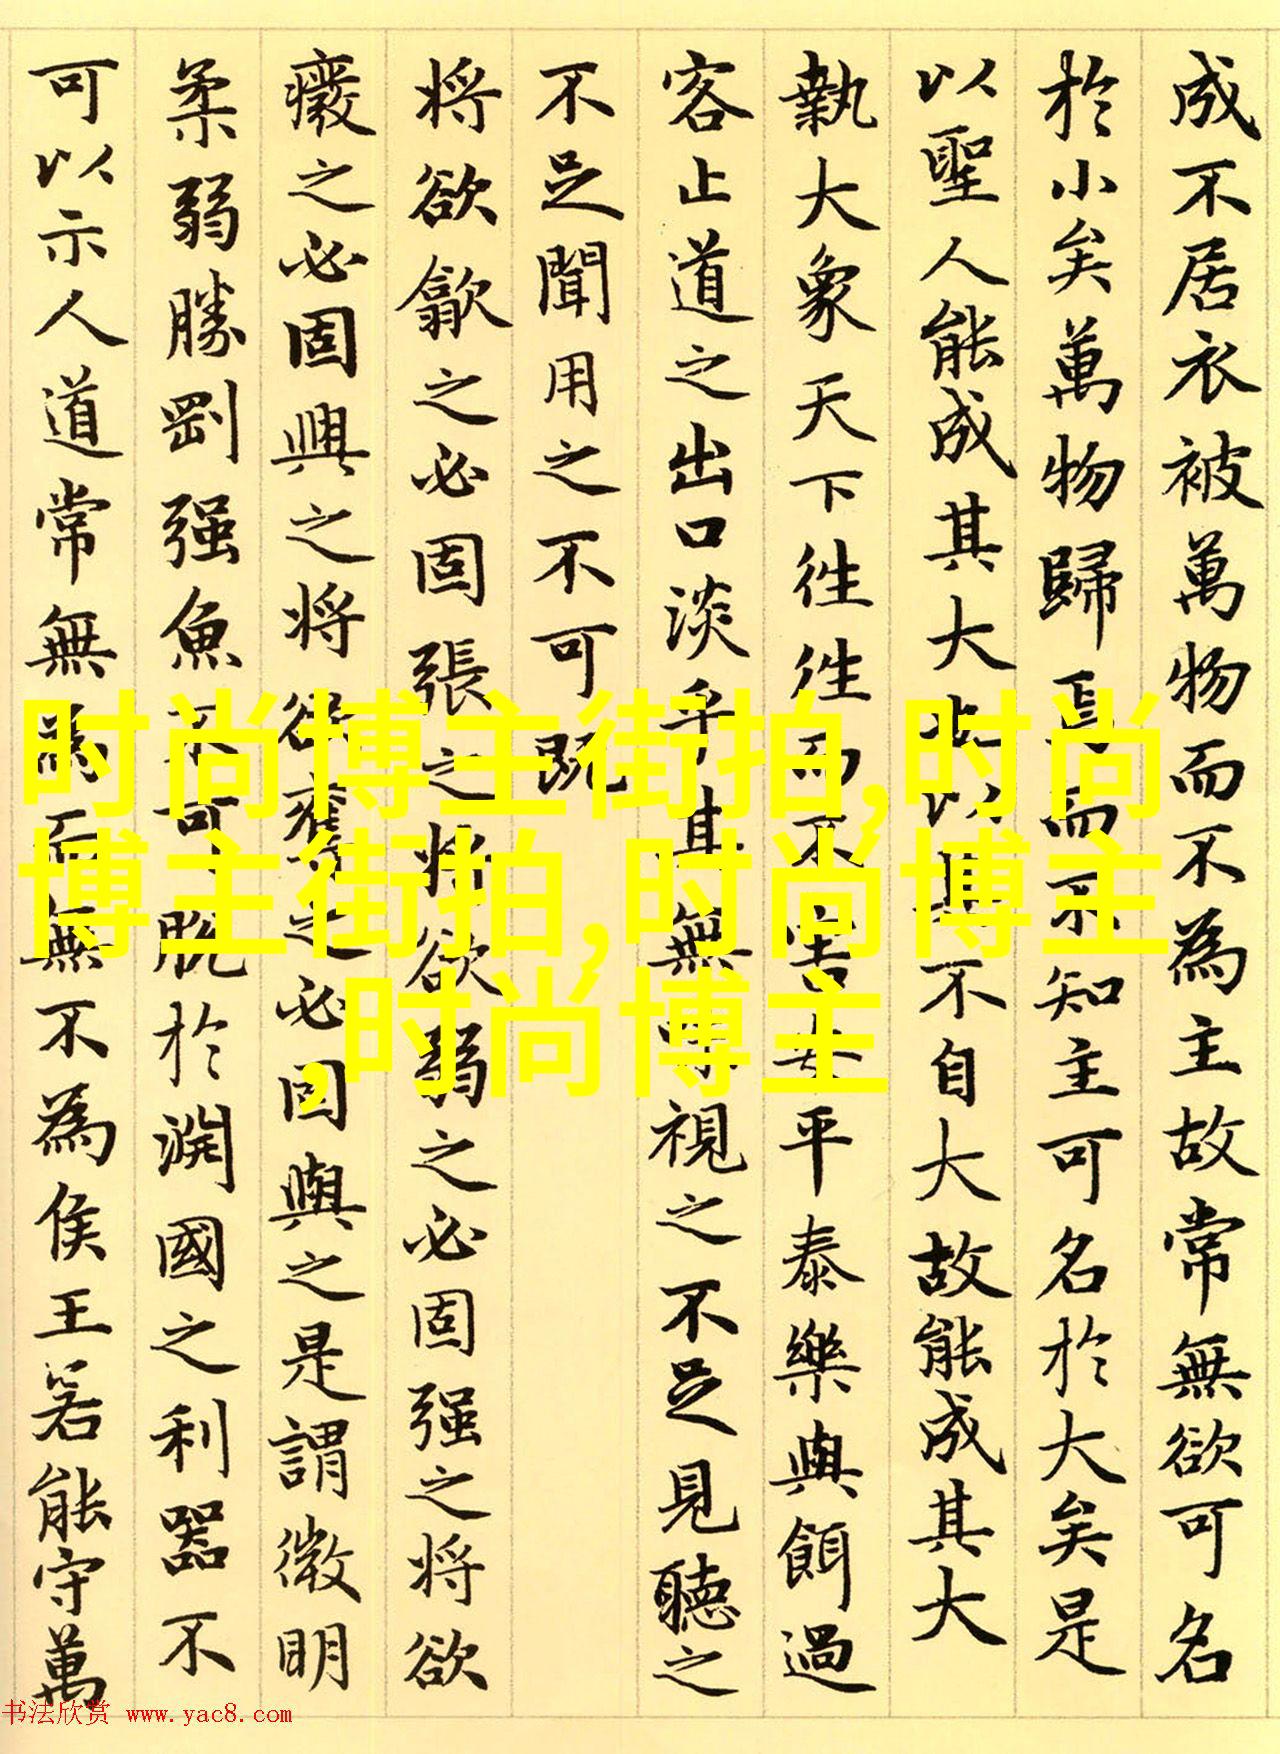 成不居衣被萬物而不為主故常無欲可名
於小矣萬物歸焉而不知主可名於大矣是
以聖人能成其大也以其不自大故能成其大
執大象天下往往而不害安平泰樂與餌過
客止道之出口淡乎其無味視之不足見聽之
不足聞用之不可既
将欲歙之必固張之将欲弱之必固强之将欲
癈之必固興之将欲奪之必固與之是謂微明
柔弱勝剛强魚不可脱於淵國之利器不
可以示人道常無為而無不為侯王若能守萬
时尚博主街拍,时尚
博主街拍,时尚博主
,时尚博主
书法欣赏 www.yac8.com